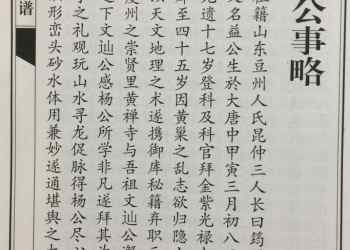 公事略
籍山东豆州人氏昆仲三人长曰筠
名益公生於大唐中甲寅三月初八
遗十七岁登科及科官拜金紫光禄
至四十五岁因黄巢之乱志欲归隐
天文地理之术遂携御库秘籍弃职
虔州之崇贤里黄禅寺与吾祖文辿公
之下文辿公感杨公所学非凡遂拜其
子之礼观玩山水寻龙促脉得杨公尽
形峦头砂水体用兼妙遂通堪舆之九
谱